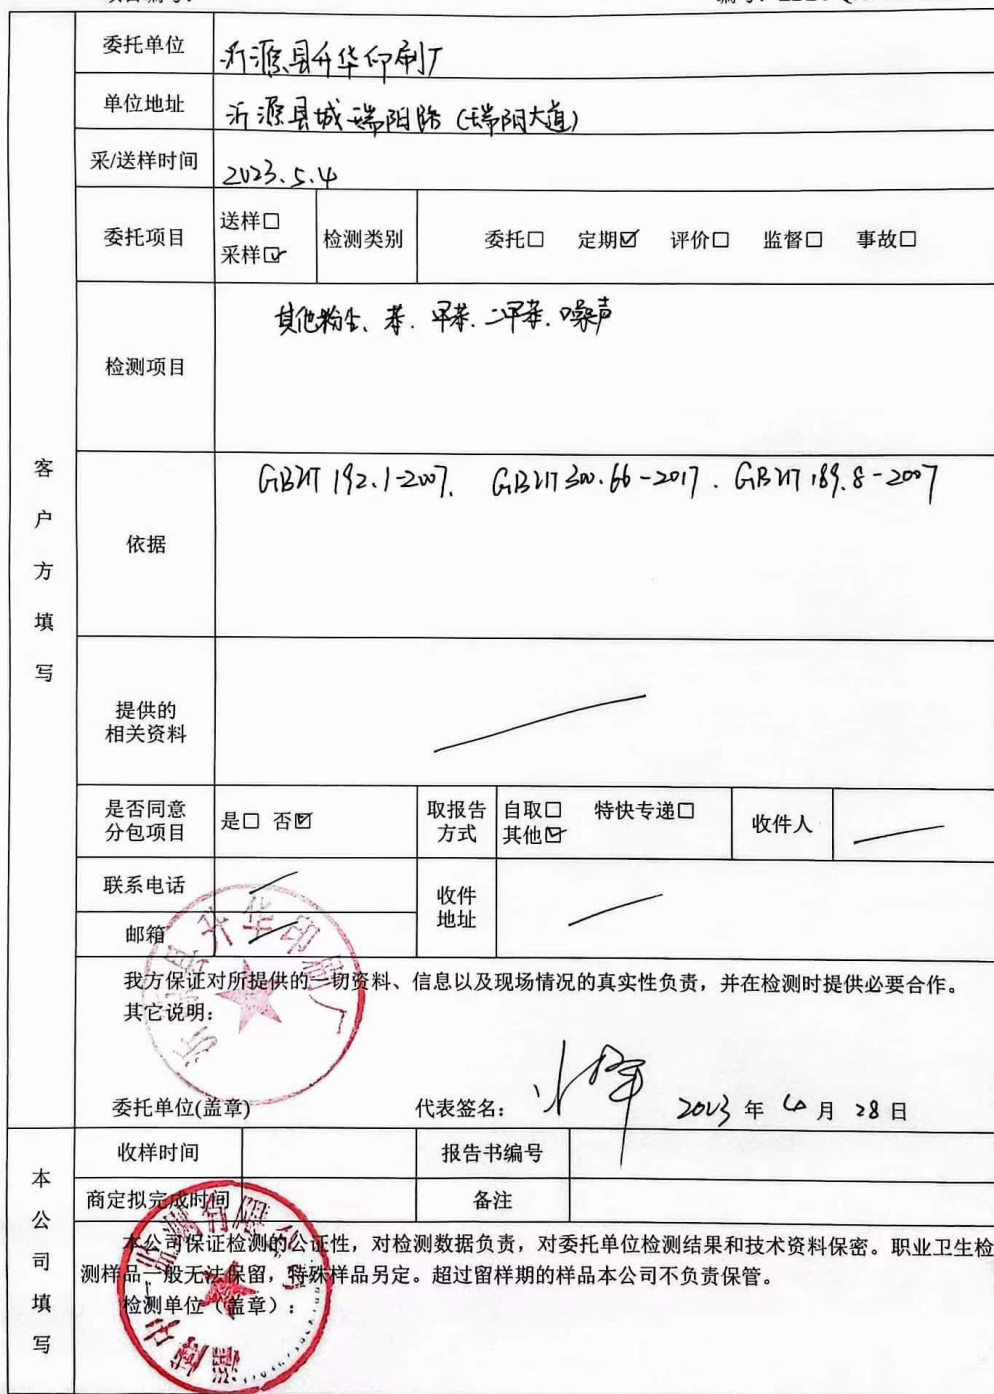 委托单位 沂源县升华印刷厂
单位地址 沂源县城瑞阳路(瑞阳大道)
采/送样时间 2023.5.4
委托项目 送样□ 采样☑ 检测类别 委托□ 定期☑ 评价□ 监督□ 事故□
检测项目 其他粉尘、苯.甲苯.二甲苯.噪声
依据 GBZ/T 192.1-2007. GBZ/T 300.66-2017. GBZ/T 189.8-2007
提供的
相关资料
是否同意
分包项目 是□ 否☑ 取报告
方式 自取□ 特快专递□
其他☑ 收件人
联系电话 收件
地址
邮箱
客户方填写
我方保证对所提供的一切资料、信息以及现场情况的真实性负责，并在检测时提供必要合作。
其它说明：
沂源县升华印刷厂
委托单位(盖章) 代表签名： 2023 年 4 月 28 日
本公司填写
收样时间 报告书编号
商定拟完成时间 备注
本公司保证检测的公证性，对检测数据负责，对委托单位检测结果和技术资料保密。职业卫生检
测样品一般无法保留，特殊样品另定。超过留样期的样品本公司不负责保管。
检测单位（盖章）：